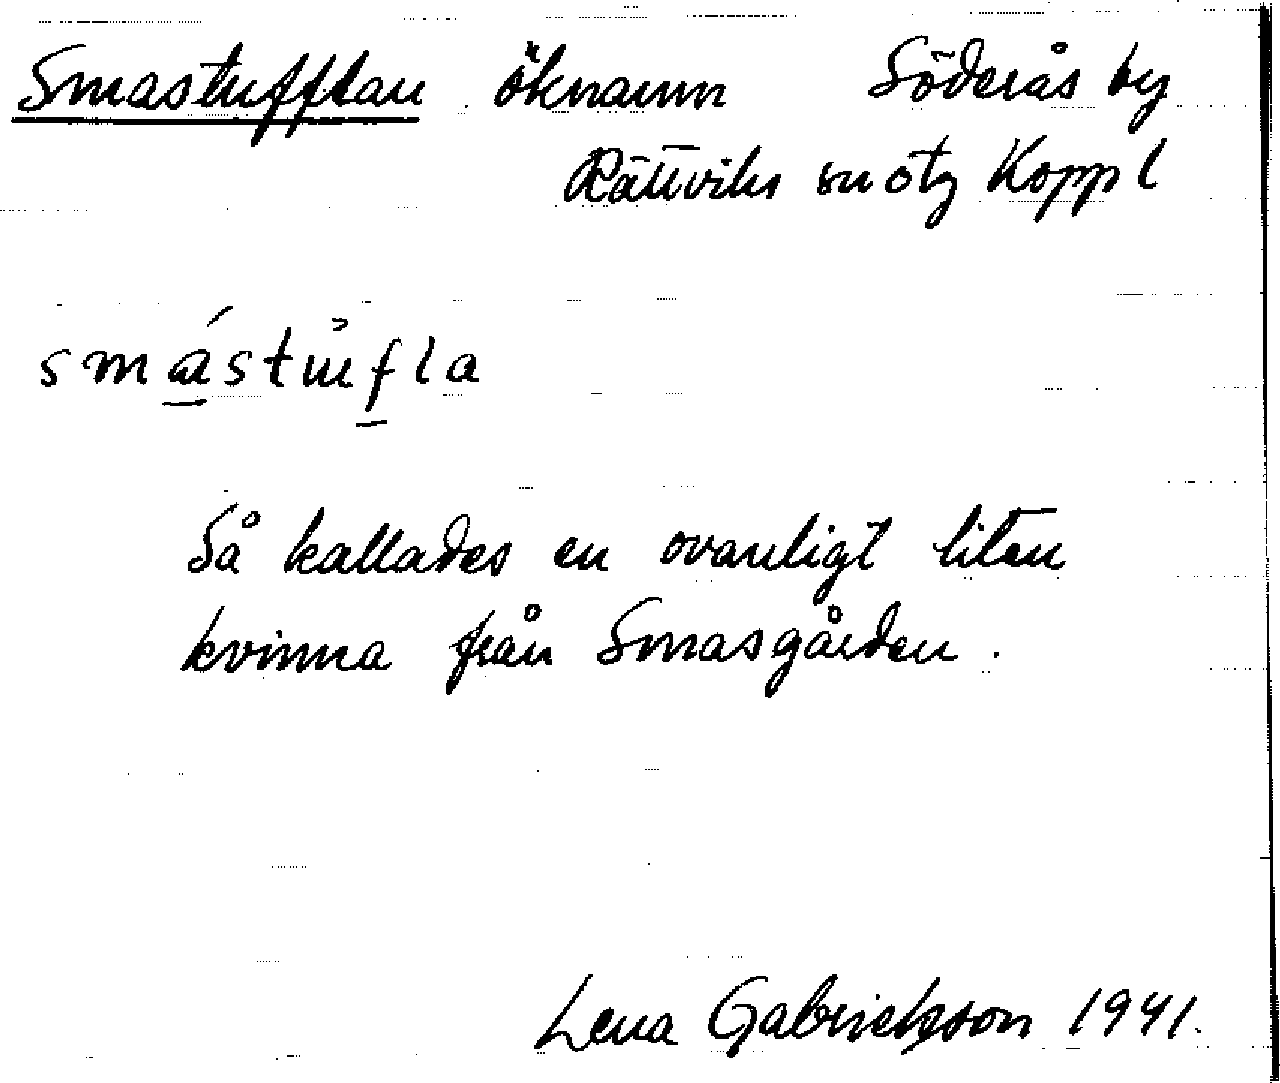 Smastufflan öknamn Söderås by
Rättviks sn otg Koppl
smástufla
Så kallades en ovanligt liten
kvinna från Smasgården.
Lena Gabrielsson 1941.